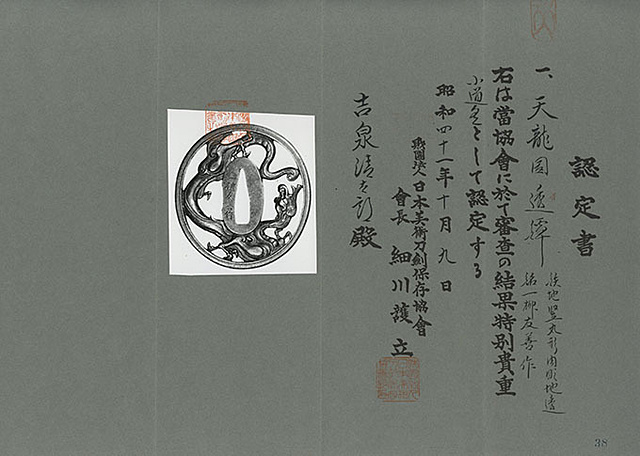 認定書
一、天龍図透鐔
鉄地竪丸形肉彫地透
銘一柳友善作
右は當協會に於て審査の結果特別貴重
小道具として認定する
昭和四十一年十月九日
財團法人日本美術刀劍保存協會
會長 細川護立
吉泉清太郎殿
38